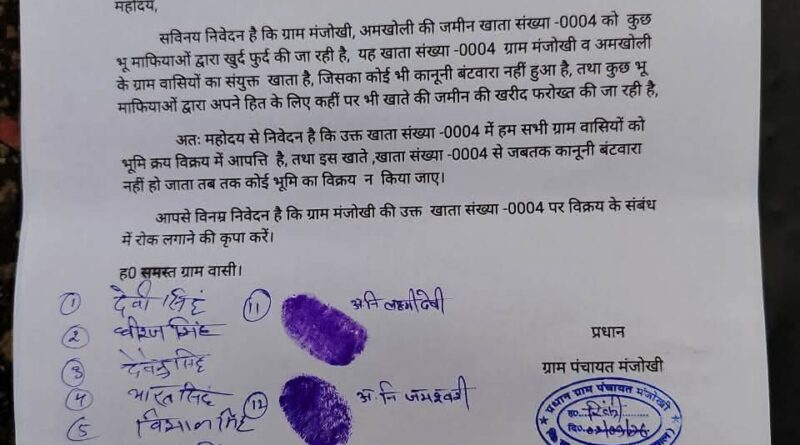 महोदय,
सविनय निवेदन है कि ग्राम मंजोखी, अमखोली की जमीन खाता संख्या -0004 को कुछ
भू माफियाओं द्वारा खुर्द फुर्द की जा रही है, यह खाता संख्या -0004 ग्राम मंजोखी व अमखोली
के ग्राम वासियों का संयुक्त खाता है, जिसका कोई भी कानूनी बंटवारा नहीं हुआ है, तथा कुछ भू
माफियाओं द्वारा अपने हित के लिए कहीं पर भी खाते की जमीन की खरीद फरोख्त की जा रही है,
अतः महोदय से निवेदन है कि उक्त खाता संख्या -0004 में हम सभी ग्राम वासियों को
भूमि क्रय विक्रय में आपत्ति है, तथा इस खाते ,खाता संख्या -0004 से जबतक कानूनी बंटवारा
नहीं हो जाता तब तक कोई भूमि का विक्रय न किया जाए।
आपसे विनम्र निवेदन है कि ग्राम मंजोखी की उक्त खाता संख्या -0004 पर विक्रय के संबंध
में रोक लगाने की कृपा करें।
ह0 समस्त ग्राम वासी।
① देवी सिंह
② धीरज सिंह
③ देवेन्द्र सिंह
④ भारत सिंह
⑤ विशाल सिंह
⑪ अ.नि लक्ष्मी देवी
⑫ अ.नि
प्रधान
ग्राम पंचायत मंजोखी
प्रधान ग्राम पंचायत मंजोखी
ह0
दि0